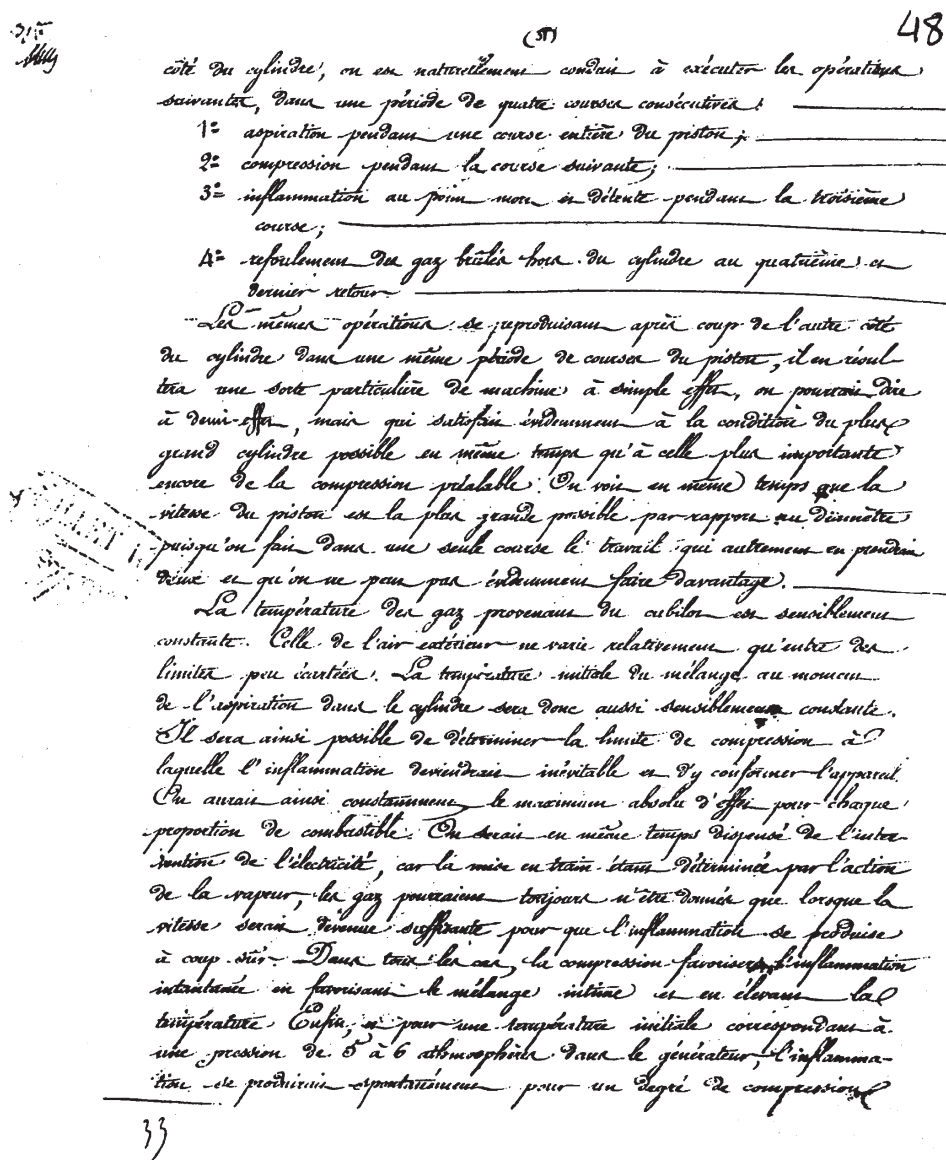 48
côté du cylindre, on est naturellement conduit à exécuter les opérations
suivantes, dans une période de quatre courses consécutives :
1º aspiration pendant une course entière du piston ;
2º compression pendant la course suivante ;
3º inflammation au point mort et détente pendant la troisième
course ;
4º refoulement des gaz brûlés hors du cylindre au quatrième et
dernier retour.
Les mêmes opérations se reproduisant après coup de l'autre côté
du cylindre dans une même période de courses du piston, il en résul-
tera une sorte particulière de machine à simple effet, on pourrait dire
à demi-effet, mais qui satisfait évidemment à la condition du plus
grand cylindre possible en même temps qu'à celle plus importante
encore de la compression préalable. On voit en même temps que la
vitesse du piston est la plus grande possible par rapport au diamètre
puisqu'on fait dans une seule course le travail qui autrement en prendrait
deux et qu'on ne peut pas évidemment faire davantage.
La température des gaz provenant du cubilot est sensiblement
constante. Celle de l'air extérieur ne varie relativement qu'entre des
limites peu écartées. La température initiale du mélange au moment
de l'aspiration dans le cylindre sera donc aussi sensiblement constante.
Il sera ainsi possible de déterminer la limite de compression à
laquelle l'inflammation deviendrait inévitable et d'y conformer l'appareil.
On aurait ainsi constamment le maximum absolu d'effet pour chaque
proportion de combustible. On serait en même temps dispensé de l'inter-
vention de l'électricité, car la mise en train étant déterminée par l'action
de la vapeur, les gaz pourraient toujours n'être donnés que lorsque la
vitesse serait devenue suffisante pour que l'inflammation se produise
à coup sûr. Dans tous les cas, la compression favorisera l'inflammation
instantanée en favorisant le mélange intime et en élevant la
température. Enfin, et pour une température initiale correspondant à
une pression de 5 à 6 athmosphères dans le générateur, l'inflamma-
tion se produirait spontanément pour un degré de compression
33